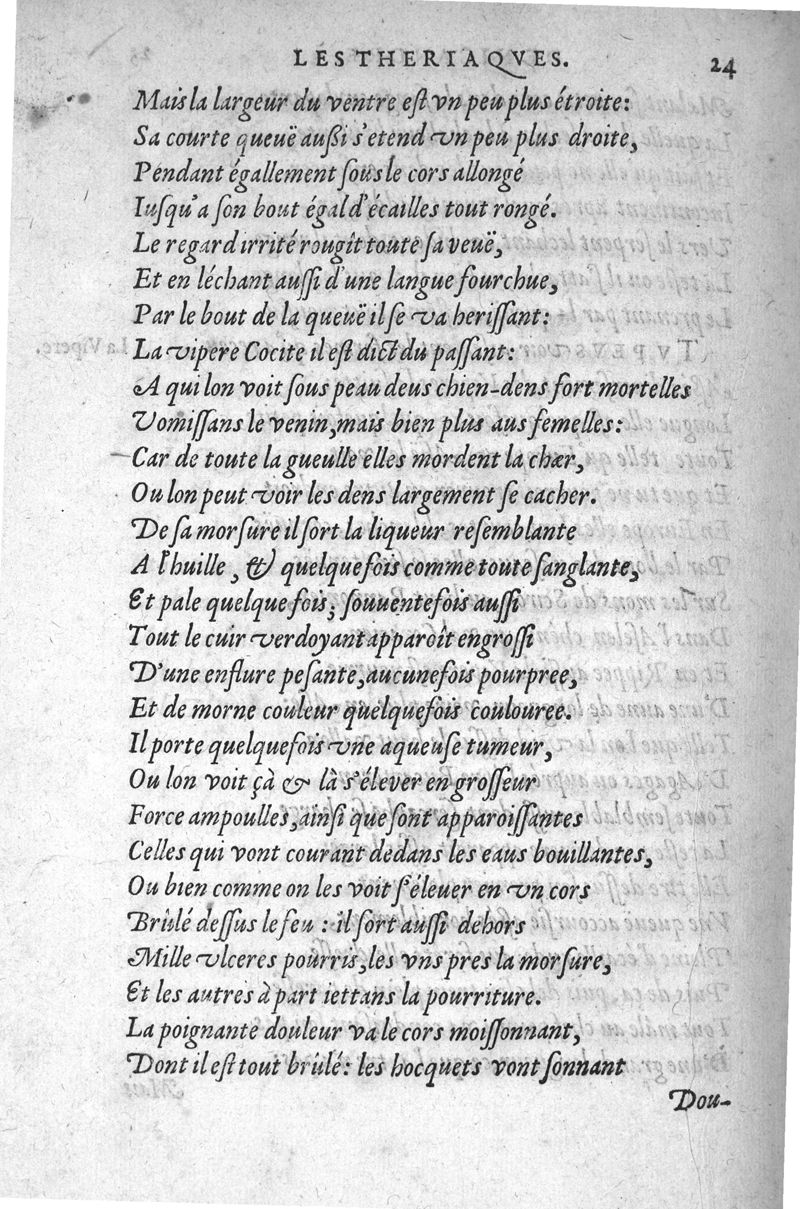 LES THERIAQVES.
24
Mais la largeur du ventre est vn peu plus étroite:
Sa courte queuë außi s'etend vn peu plus droite,
Pendant égallement sous le cors allongé
Iusqu'a son bout égal d'écailles tout rongé.
Le regard irrité rougît toute sa veuë,
Et en léchant aussi d'une langue fourchue,
Par le bout de la queuë il se va herissant:
La vipere Cocite il est dict du passant:
A qui lon voit sous peau deus chien-dens fort mortelles
Vomissans le venin, mais bien plus aus femelles:
Car de toute la gueulle elles mordent la chær,
Ou lon peut voir les dens largement se cacher.
De sa morsure il sort la liqueur resemblante
A l'huille, & quelquefois comme toute sanglante,
Et pale quelquefois; souuentefois aussi
Tout le cuir verdoyant apparoît engrossi
D'une enflure pesante, aucunefois pourpree,
Et de morne couleur quelquefois coulouree.
Il porte quelquefois vne aqueuse tumeur,
Ou lon voit çà & là s'élever en grosseur
Force ampoulles, ainsi que sont apparoissantes
Celles qui vont courant dedans les eaus bouillantes,
Ou bien comme on les voit s'éleuer en vn cors
Brûlé dessus le feu : il sort aussi dehors
Mille vlceres pourris, les vns pres la morsure,
Et les autres à part iettans la pourriture.
La poignante douleur va le cors moissonnant,
Dont il est tout brûlé: les hocquets vont sonnant
Dou-